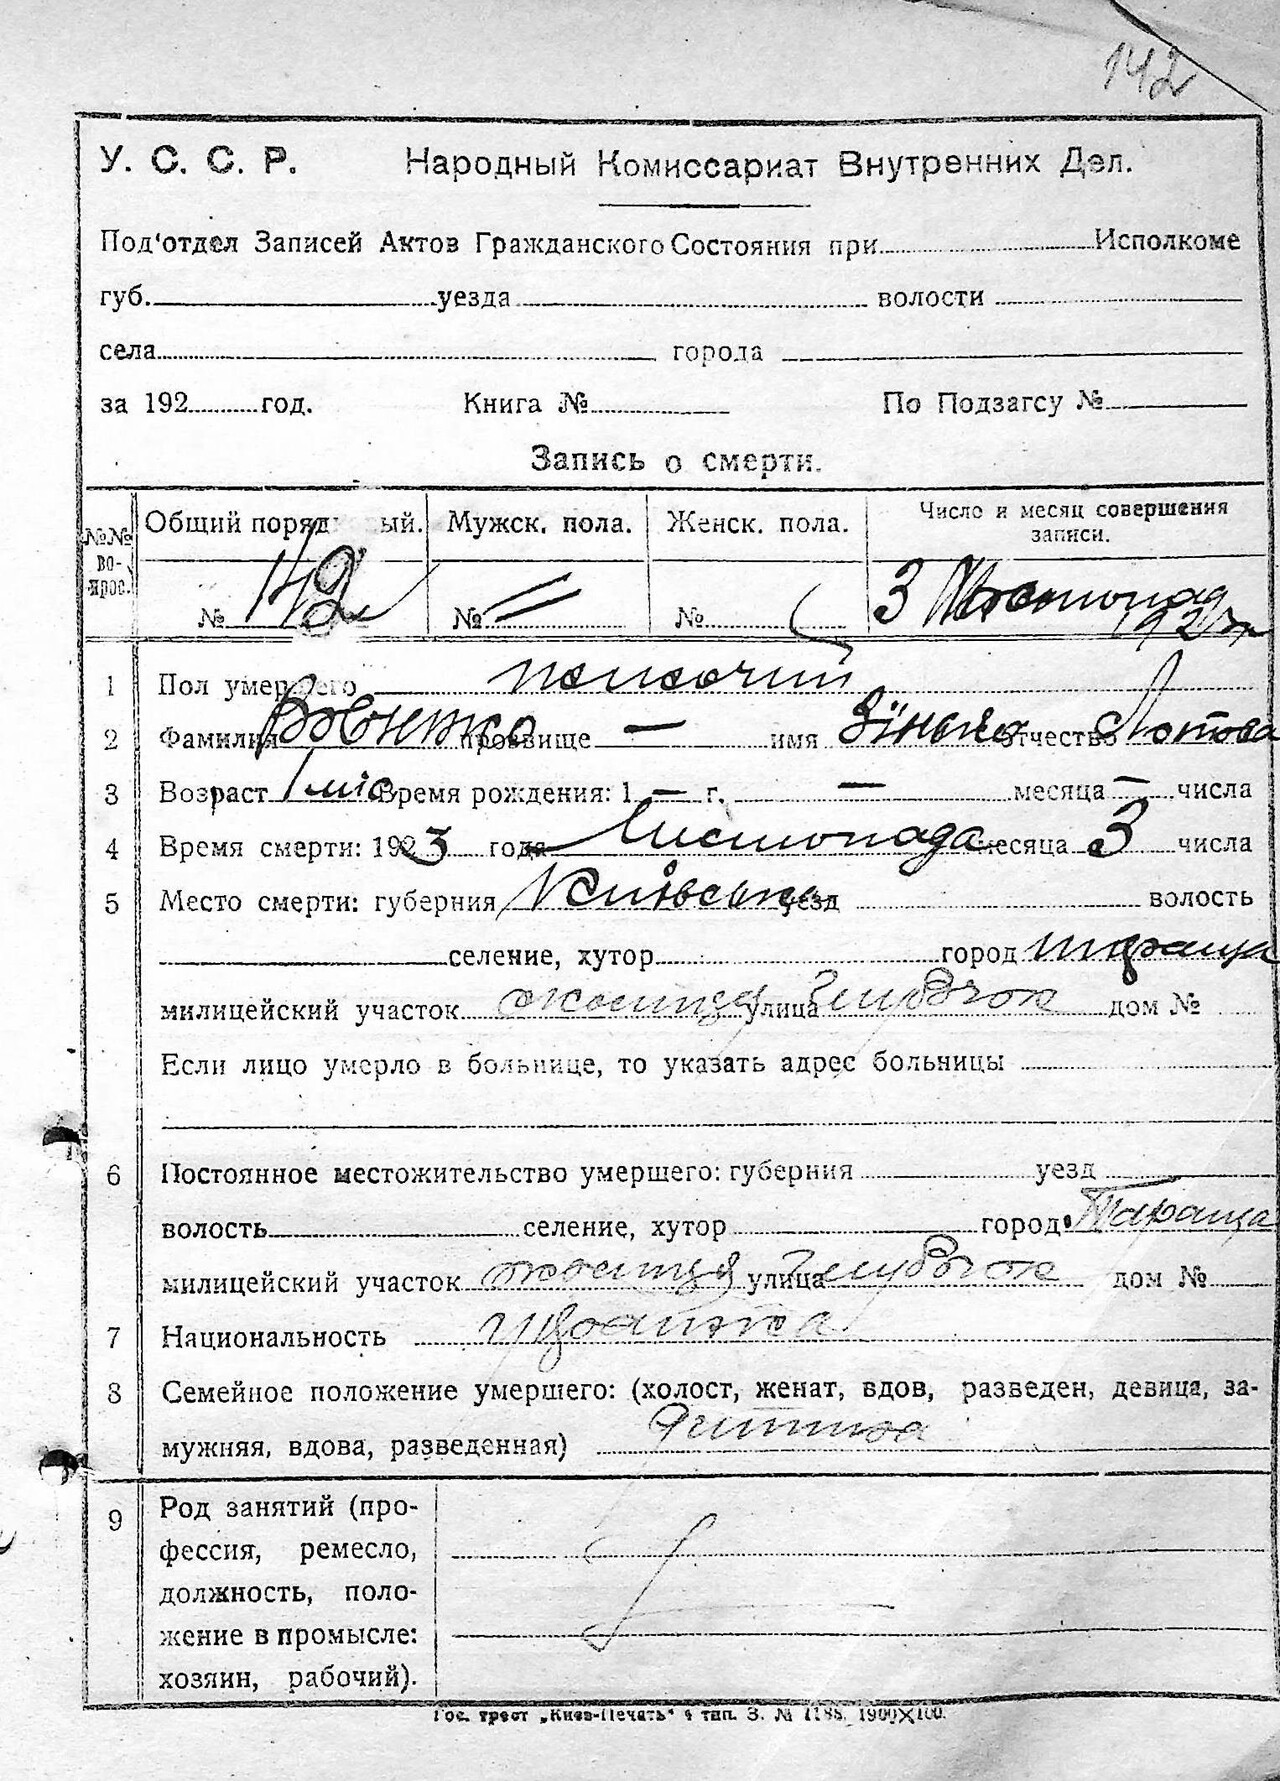 142
У. С. С. Р. Народный Комиссариат Внутренних Дел.
Под'отдел Записей Актов Гражданского Состояния при Исполкоме
губ. уезда волости
села города
за 192 год. Книга № По Подзагсу №
Запись о смерти.
№№ вопрос. Общий поряд ый. Мужск. пола. Женск. пола. Число и месяц совершения записи.
№ 142 № № 3 Листопад
1 Пол умершего жіночий
2 Фамилия Вовненко прозвище — имя Зінька отчество
3 Возраст 1 міс Время рождения: 1 — г. — месяца — числа
4 Время смерти: 1923 года Листопада месяца 3 числа
5 Место смерти: губерния Київська уезд волость
селение, хутор город Тараща
милицейский участок околиця улица Глибочок дом №
Если лицо умерло в больнице, то указать адрес больницы
6 Постоянное местожительство умершего: губерния уезд
волость селение, хутор город Тараща
милицейский участок околиця улица Глибочок дом №
7 Национальность українка
8 Семейное положение умершего: (холост, женат, вдов, разведен, девица, за-
мужняя, вдова, разведенная) дитина
9 Род занятий (про-
фессия, ремесло,
должность, поло-
жение в промысле:
хозяин, рабочий).
Гос. трест „Киев-Печать" 4 тип. З. № 1188. 1900×100.